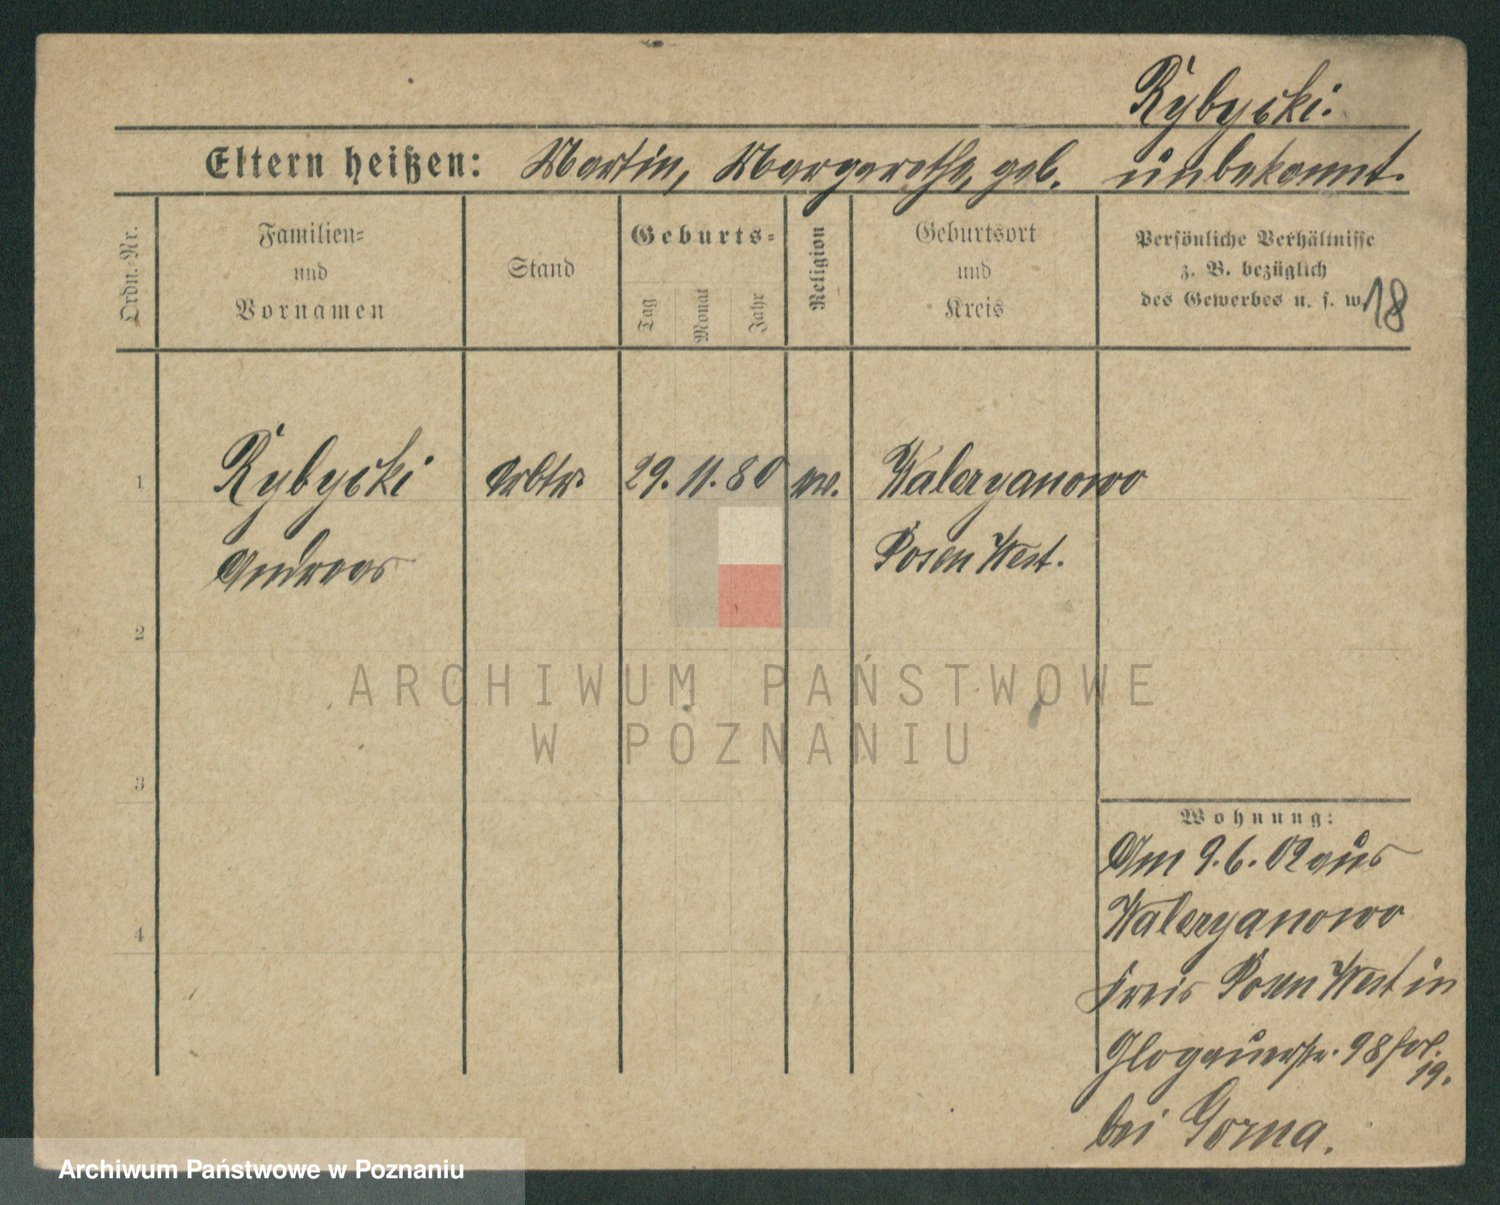 Rybycki.
Eltern heißen: Martin, Margarethe, geb. unbekannt.
Ordn.-Nr.
Familien-
und
Vornamen
Stand
Geburts-
Tag
Monat
Jahr
Religion
Geburtsort
und
Kreis
Persönliche Verhältnisse
z. B. bezüglich
des Gewerbes u. s. w.
18
1 Rybycki Arbtr. 29. 11. 80 Waleryanowo
Andreas Posen West.
2
3
4
Wohnung:
Am 9. 6. 02 aus
Waleryanowo
Kreis Posen West in
Glogauerstr. 98
19.
bei Gorna.
ARCHIWUM PAŃSTWOWE
W POZNANIU
Archiwum Państwowe w Poznaniu